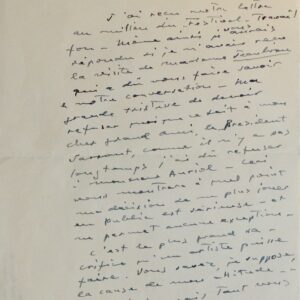 J'ai reçu votre lettre
au milieu du Festival - Travail
fou - Même ainsi je vous aurais
répondu si je n'avais reçu
la visite de Madame
qui a dû vous faire savoir
notre conversation - Ma
grande tristesse de devoir
refuser quoique ce soit à mon
cher grand ami, le Président
Sarraut, comme il n'y a pas
longtemps j'ai dû refuser
à Monsieur Auriol - Ceci
vous montrera à quel point
ma décision de ne plus jouer
en public est sérieuse - et
ne permet aucune exception -
c'est le plus grand sa-
crifice qu'un artiste puisse
faire. Vous savez, je suppose,
la cause de mon attitude -
Tant vous